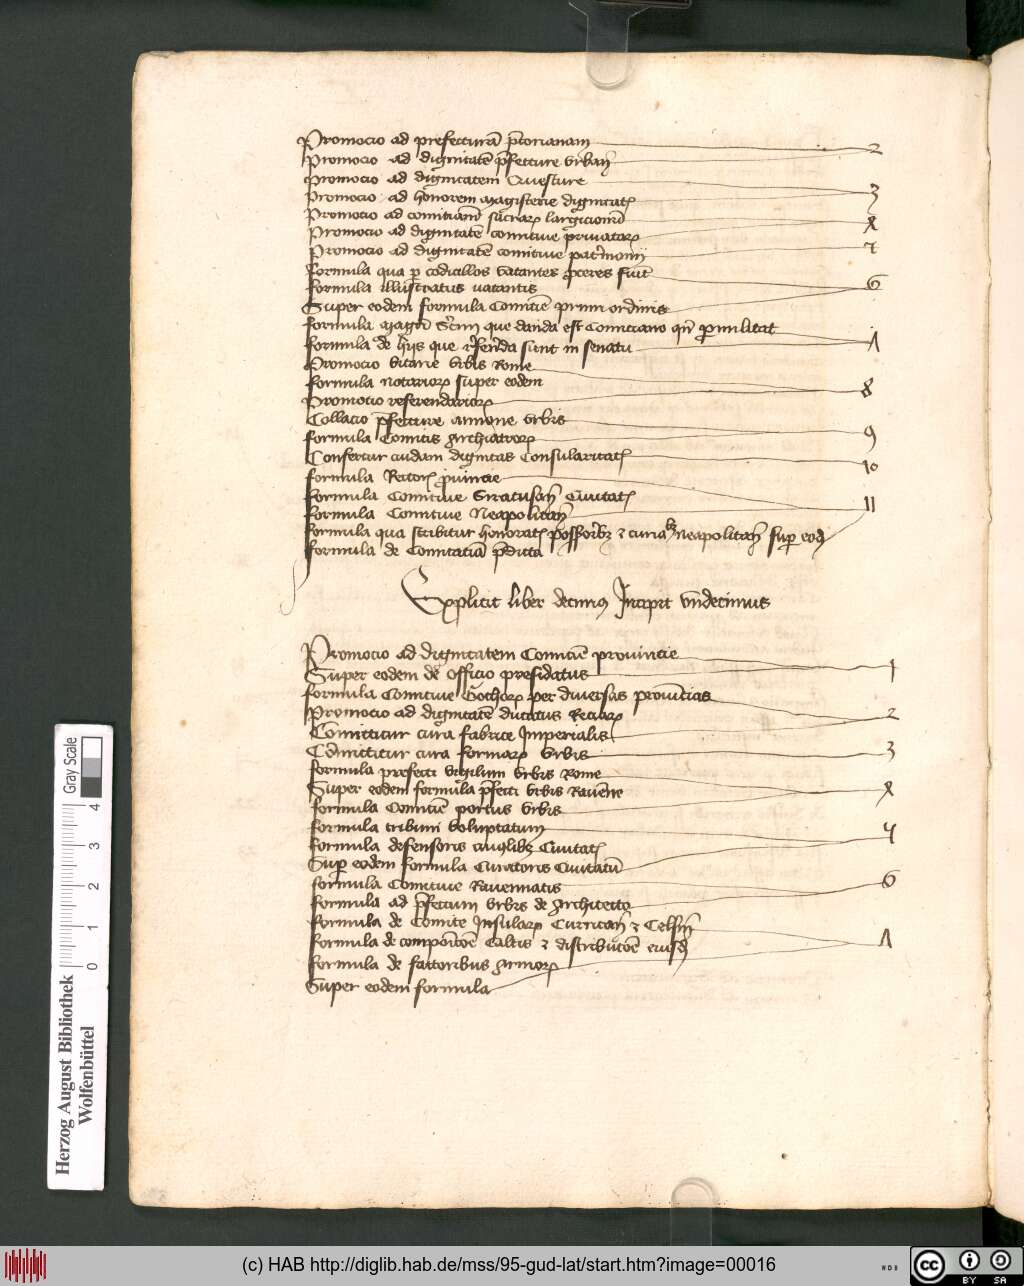 Promocio ad prefecturā p̄torianam 2
Promocio ad dignitatē p̄fecture vrban̄
Promocio ad dignitatem Questure 3
Promocio ad honorem magisterie dignitatꝭ
Promocio ad comitiuam sacrarꝝ largicionū 4
Promocio ad dignitatē comitiue priuatarꝝ
Promocio ad dignitatē comitiue pat'monij 7
Formula qua ꝑ codicillos vacantes ꝓceres fiūt
formula illustratus vacantis 6
Super eodem formula Comitiē primi ordinis
formula magr̄i Scrinij que danda est Comiciaco qn̄ ꝑmilitat
formula de hijs que referēda sunt in senatu Λ
Promocio vicarie vrbis Rome
formula notariorꝝ super eodem 8
Promocio referendariorꝝ
Collacio p̄fecture annone vrbis 9
formula Comitis Archiatrorꝝ
Confertur cuidam dignitas Consularitatꝭ 10
formula Rectorꝭ ꝓuincie
formula Comitiue Siracusan̄ Ciuitatꝭ
formula Comitiue Neapolitan̄ 11
formula qua scribitur honoratꝭ possessoribꝫ ⁊ curialibꝫ Neapolitan̄ suꝑ eod̄
formula de Comitatiā p̄dicta
Explicit liber decimꝰ Incipit vndecimus
Promocio ad dignitatem Comitiē prouincie 1
Super eodem de officio presidatus
formula Comitiue Gothorꝝ per diuersas prouincias
Promocio ad dignitatē ducatus Reciarꝝ 2
Comittitur cura fabrice Imperialis
Comittitur cura formarꝝ vrbis 3
formula prefecti vigilum vrbis Rome
Super eodem formula p̄fecti vrbis Rauēne 4
formula Comitiē portus vrbis
formula tribuni voluptatum 5
formula defensoris cuiuslibꝫ Ciuitatꝭ
Suꝑ eodem formula Curatoris Ciuitatū
formula Comitiue Rauennatis 6
formula ad p̄fectum vrbis de Architecto
formula de Comite Insularꝝ Curritan̄ ⁊ Celsin̄
formula de composicōe Calcis ⁊ distribucōe eiusd̄ Λ
formula de factoribus Armorꝝ
Super eodem formula
Herzog August Bibliothek
Wolfenbüttel
Gray Scale
0 1 2 3 4
(c) HAB http://diglib.hab.de/mss/95-gud-lat/start.htm?image=00016
WDB
cc BY SA